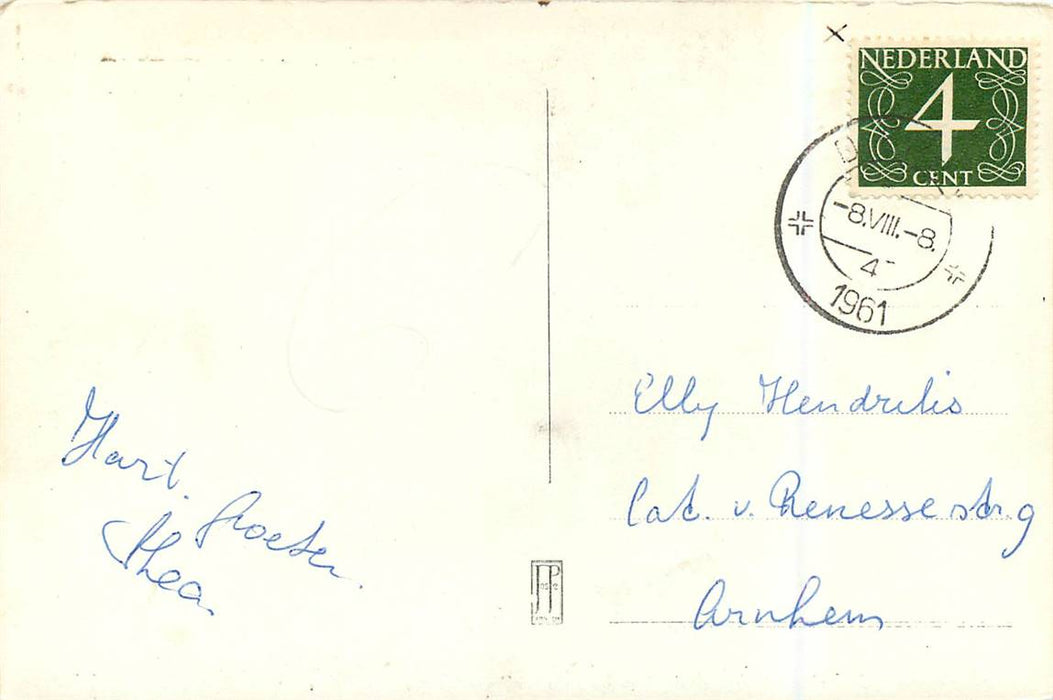 NEDERLAND
4
CENT
-8.VIII.-8.
4
1961
Hart. Groeten.
Thea.
Elly Hendriks
Cat. v. Renessestr. 9
Arnhem
JP